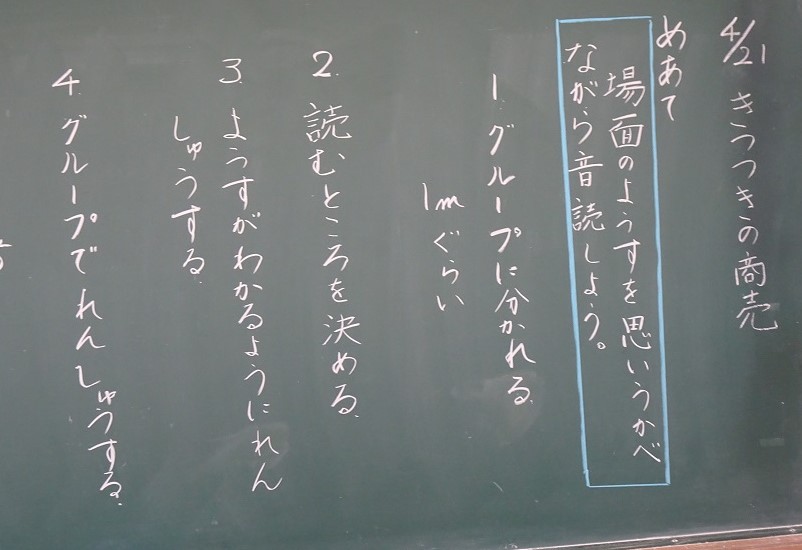 4/21 きつつきの商売
めあて
場面のようすを思いうかべ
ながら音読しよう。
1. グループに分かれる.
1mぐらい
2. 読むところを決める.
3. ようすがわかるようにれん
しゅうする.
4. グループでれんしゅうする.